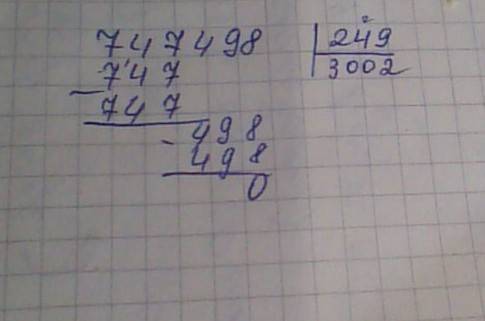 747498 | 249
747 3002
- 747
- 498
498
0